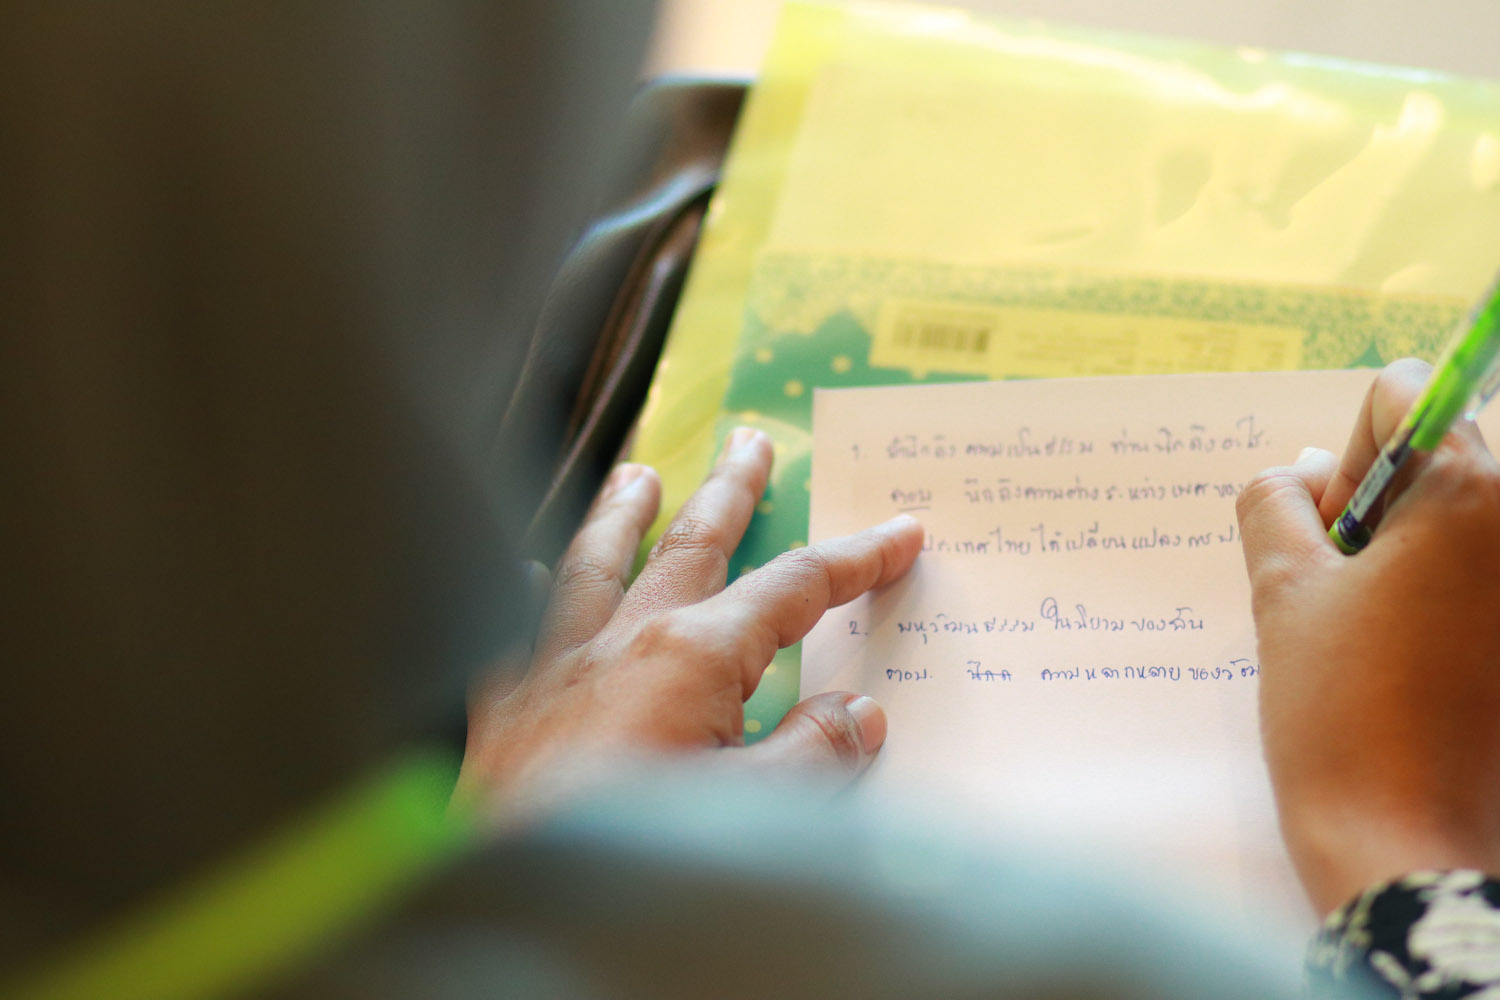 1. ถ้านึกถึง ความเป็นธรรม ท่านนึกถึงอะไร.
ตอบ นึกถึงความต่างระหว่างเพศของ
ประเทศไทยได้เปลี่ยนแปลงการป
2. พหุวัฒนธรรม ในนิยามของฉัน
ตอบ. ความหลากหลายของวัฒ